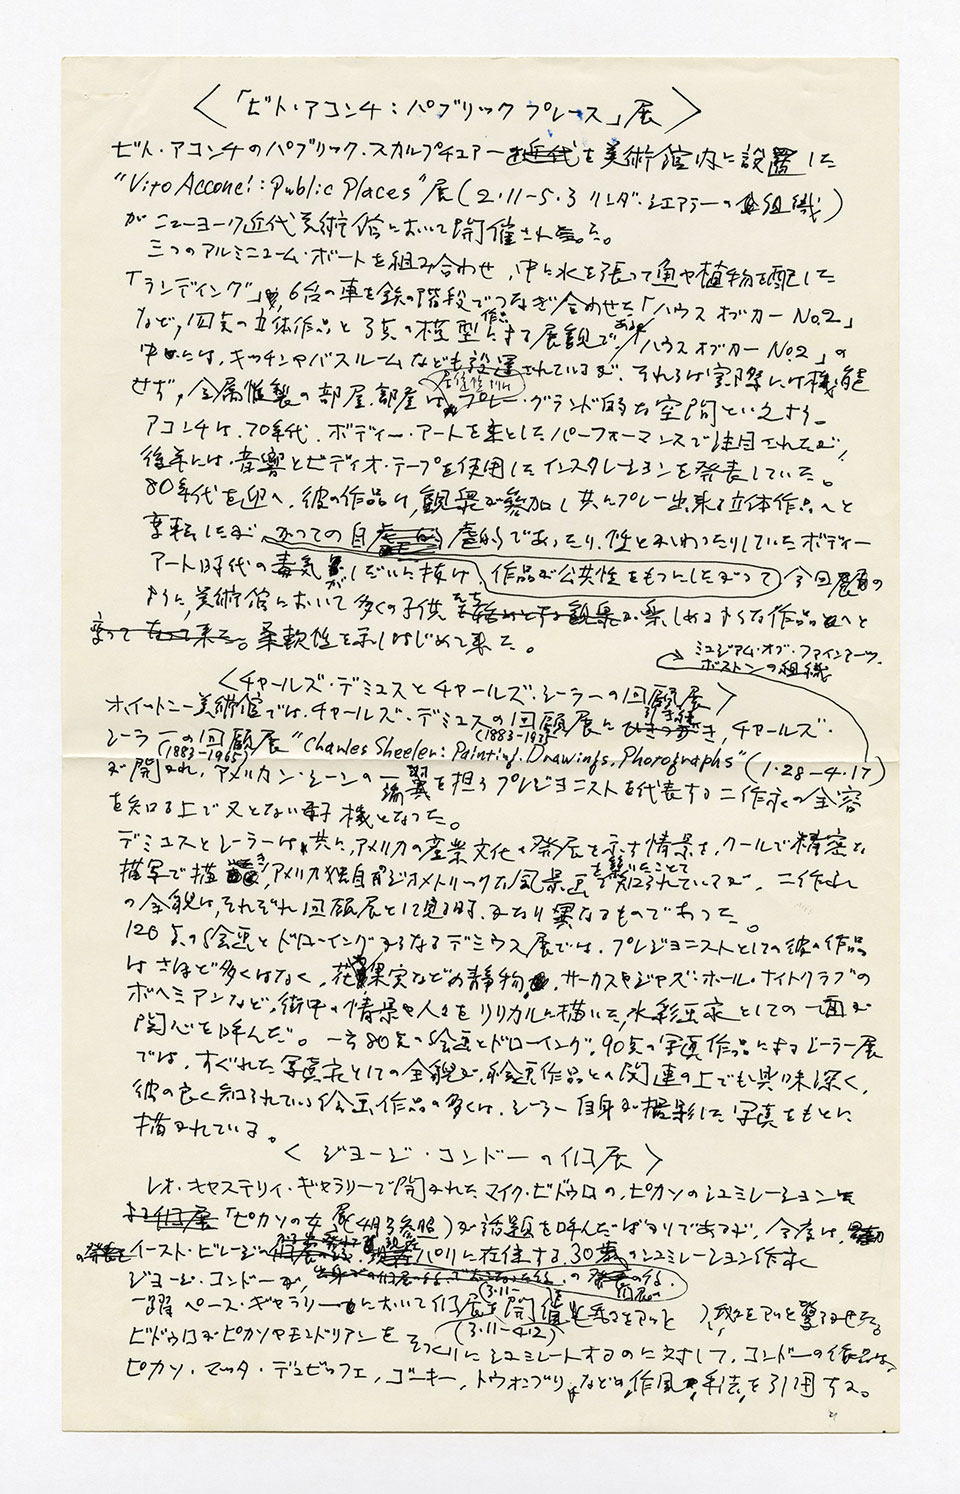 〈「ビト・アコンチ：パブリック プレース」展〉
ビト・アコンチのパブリック・スカルプチュアーを美術館内に設置した
"Vito Acconci: Public Places"展(2・11-5・3 リンダ・シエアラーの組織)
がニューヨーク近代美術館において開催された。
三つのアルミニューム・ボートを組み合わせ、中に水を張って魚や植物を配した
「ランディング」、6台の車を鉄の階段でつなぎ合わせた「ハウス オブ カー No.2」
など、四点の立体作品と3点の模型作品による展観である。「ハウス オブ カー No.2」の
中には、キッチンやバスルームなども設置されているが、それらは実際には機能
せず、金属性製の部屋部屋は プレー・グランド的な空間といえよう。
アコンチは、70年代、ボディー・アートを主としたパーフォーマンスで注目されたが、
後年には、音響とビディオ・テープを使用したインスタレーションを発表していた。
80年代を迎へ、彼の作品は、観衆が参加し共にプレー出来る立体作品へと
変転したが、かつての自虐的であったり、性とかかわったりしていたボディー
アート時代の毒気がしだいに抜け、作品が公共性をもつにしたがって 今回展の
ように、美術館において多くの子供たちが楽しめるような作品へと
柔軟性を示しはじめて来た。
ミュジアム・オブ・ファインアーツ、
ボストンの組織
〈チャールズ・デミュスとチャールズ・シーラーの回顧展〉
ホイットニー美術館では、チャールズ・デミュスの回顧展に引き続き、チャールズ・
(1883-1935)
シーラーの回顧展"Charles Sheeler: Painting, Drawings, Phorographs"(1・28-4・17)
(1883-1965)
が開かれ、アメリカン・シーンの一翼を担うプレジョニストを代表する二作家の全容
を知る上で又とない機となった。
デミュスとシーラーは、共に、アメリカの産業文化の発展を示す情景を、クールで精密な
描写で描き、アメリカ独自のジオメトリックな風景画を築いたことで知られているが、二作家
の全貌は、それぞれ回顧展として見る時、かなり異なるものであった。
120点の絵画とドローイングからなるデミウス展では、プレジョニストとしての彼の作品
はさほど多くはなく、花や果実などの静物、サーカスやジャズ・ホール・ナイトクラブの
ボヘミアンなど、街中の情景や人々をリリカルに描いた、水彩画家としての一面が
関心を呼んだ。一方80点の絵画とドローイング、90点の写真作品によるシーラー展
では、すぐれた写真家としての全貌が、絵画作品との関連の上でも興味深く、
彼の良く知られている絵画作品の多くは、シーラー自身が撮影した写真をもとに
描かれている。
〈ジョージ・コンドーの個展〉
レオ・キャステリィ・ギャラリーで開かれたマイク・ビドゥロの、ピカソのシュミレーション
「ピカソの女」展(4月号参照)が話題を呼んだばかりであるが、今度は、
イースト・ビレージ パリに在住する、30歳のシュミレーション作家
ジョージ・コンドーが、
一躍 ペース・ギャラリーにおいて個展を開催し、
(3・11-4・12)
ビドゥロがピカソやモンドリアンをそっくりにシュミレートするのに対して、コンドーの作品は、
ピカソ、マッタ・デュビッフェ、ゴーキー、トウォンブリィなどの作風や手法を引用する。